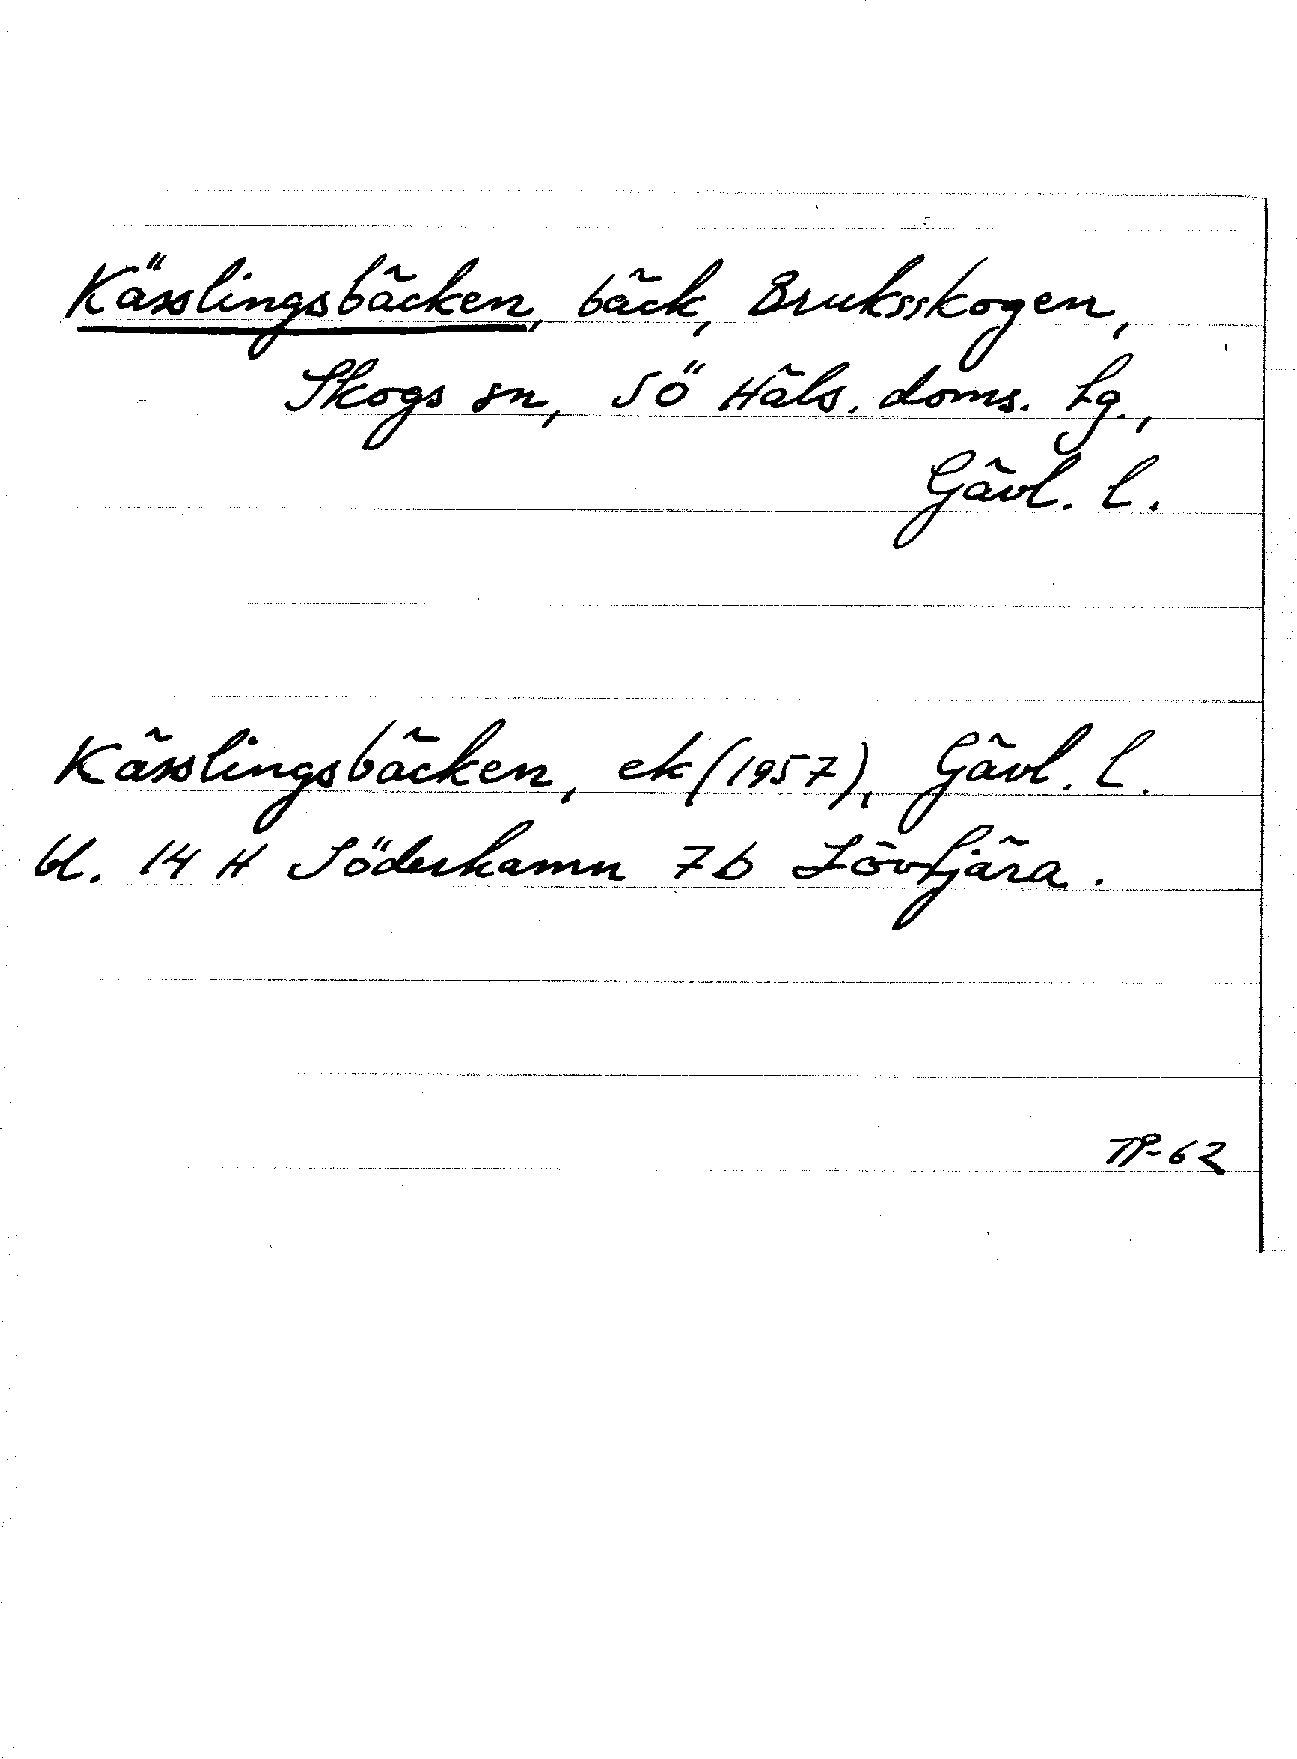 Kässlingsbäcken, bäck, Bruksskogen,
Skogs sn, SÖ Häls. doms. tg.,
Gävl. l.
Kässlingsbäcken, ek (1957), Gävl. l.
bl. 14 H Söderhamn 7b Lövtjära.
TP-62